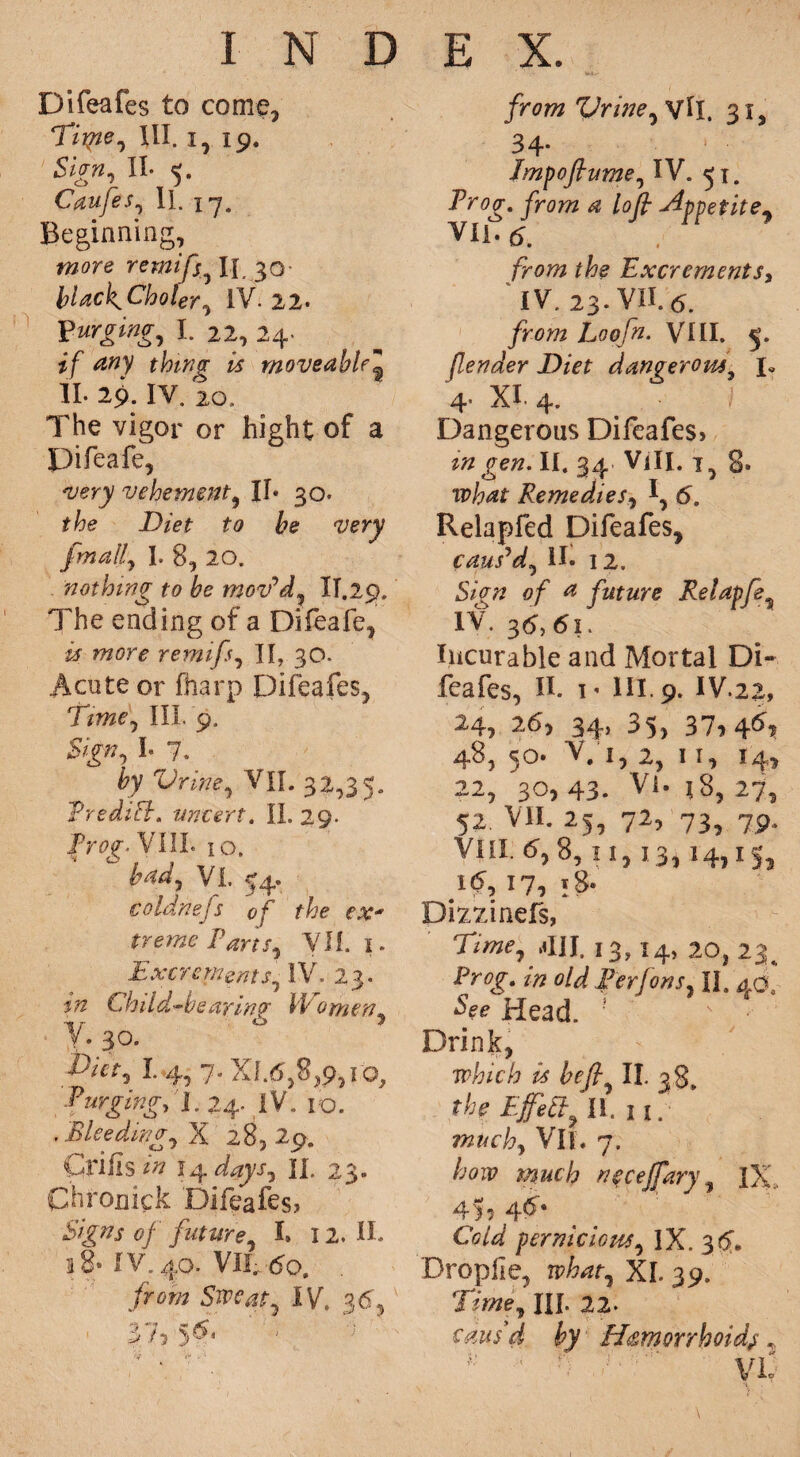 INDEX.
Difeafes to come,
Time, III. 1, 19.
Sign, II. 5.
Caufes, II. 17.
Beginning,
more remifs, II. 30
black Choler, IV. 22.
Purging, I. 22, 24.
if any thing is moveable,
II. 29. IV. 20.
The vigor or hight of a
Difeafe,
very vehement, II. 30.
the Diet to be very
fmall, I. 8, 20.
nothing to be mov'd, II.29.
The ending of a Difeafe,
is more remifs, II, 30.
Acute or fharp Difeafes,
Time, III. 9.
Sign, I. 7.
by Urine, VII. 32,35.
Predict. uncert. II. 29.
Prog. VIII. 10.
bad, VI. 54.
coldnefs of the ex-
treme Parts, VII. 1.
Excrements, IV. 23.
in Child-bearing Women,
V. 30.
Diet, I. 4, 7. XI.6,8,9,10,
Purging, I. 24. IV. 10.
Bleeding, X 28, 29.
Crifis in 14 days, II. 23.
Chronick Difeafes,
Signs of future, I. 12. II.
18. IV. 40. VII. 60.
from Sweat, IV. 36,
37, 56.
from Urine, VII. 31,
34.
Impoftume, IV. 51.
Prog. from a loft Appetite,
VII. 6.
from the Excrements,
IV. 23. VII. 6.
from Loofn. VIII. 5.
flender Diet dangerous, I.
4. XI. 4.
Dangerous Difeafes,
in gen. II. 34. VIII. 1, 8.
what Remedies, I, 6.
Relapfed Difeafes,
caus'd, II. 12.
Sign of a future Relapfe,
IV. 36, 61.
Incurable and Mortal Di-
feafes, II. 1. III. 9. IV.22,
24, 26, 34, 35, 37, 46,
48, 50. V. 1, 2, 11, 14,
22, 30, 43. VI. 18, 27,
52. VII. 25, 72, 73, 79.
VIII. 6, 8, 11, 13, 14, 15,
16, 17, 18.
Dizzinefs,
Time, III. 13, 14, 20, 23.
Prog. in old Perfons, II. 40.
See Head.
Drink,
which is beft, II. 38.
the Effect, II. 11.
much, VII. 7.
how much neceffary, IX.
45, 46.
Cold pernicious, IX. 36.
Dropfie, what, XI. 39.
Time, III. 22.
caus'd by Hæmorrhoids,
VI.